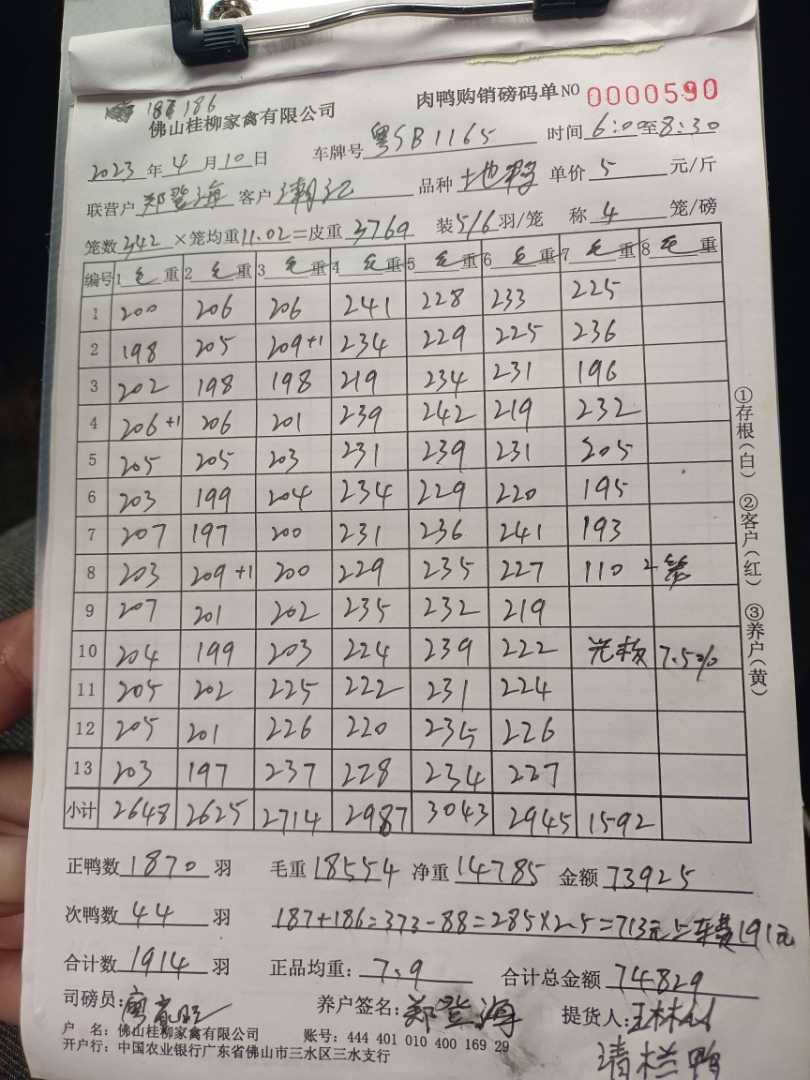 187 186
佛山桂柳家禽有限公司 肉鸭购销磅码单 NO 0000590
2023年4月10日 车牌号 粤SB1165 时间 6:00至8:30
联营户 郑登海 客户 潮江 品种 单价 5 元/斤
笼数 342 ×笼均重 11.02 =皮重 3769 装 5/6 羽/笼 称 4 笼/磅
编号 1 毛重 2 毛重 3 毛重 4 毛重 5 毛重 6 毛重 7 毛重 8 毛重
1 200 206 206 241 228 233 225
2 198 205 209+1 234 229 225 236
3 202 198 198 219 234 231 196
4 206+1 206 201 239 242 219 232
5 205 205 203 231 239 231 205
6 203 199 204 234 229 220 195
7 207 197 200 231 236 241 193
8 203 209+1 200 229 235 227 110 2笼
9 207 201 202 235 232 219
10 204 199 203 224 239 222 7.5%
11 205 202 225 222 231 224
12 205 201 226 220 235 226
13 203 197 237 228 234 227
小计 2648 2625 2714 2987 3043 2945 1592
①存根(白) ②客户(红) ③养户(黄)
正鸭数 1870 羽 毛重 18554 净重 14785 金额 73925
次鸭数 44 羽 187+186=373-88=285×2.5=713元 车费191元
合计数 1914 羽 正品均重: 7.9 合计总金额 74829
司磅员: 养户签名: 郑登海 提货人:
户 名: 佛山桂柳家禽有限公司 账号: 444 401 010 400 169 29
开户行: 中国农业银行广东省佛山市三水区三水支行
清栏鸭